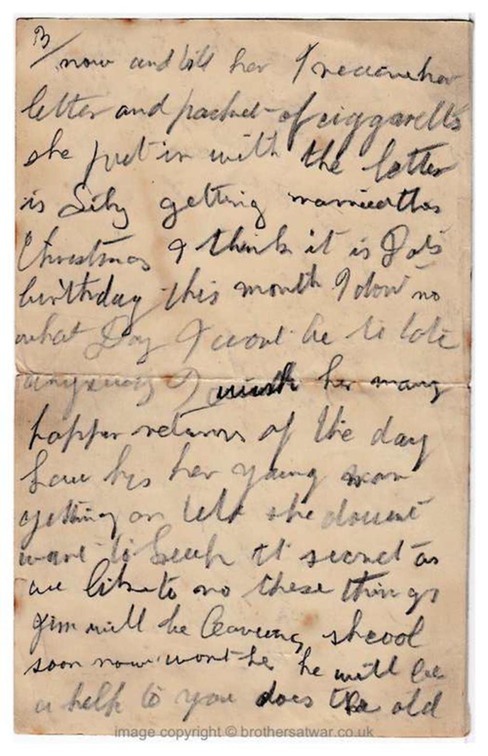 3/
now and tell her I received her
letter and packet of ciggaretts
she put in with the letter
is Lily getting married this
Christmas I think it is
birthday this month I don't no
what Day I wont be to late
anyway I wish her many
happy returns of the day
how his her young man
getting on tell she dousent
want to keep it secret as
we like to no these things
Jim will be leaveing shcool
soon now wont he he will be
a help to you does the old
image copyright © brothersatwar.co.uk